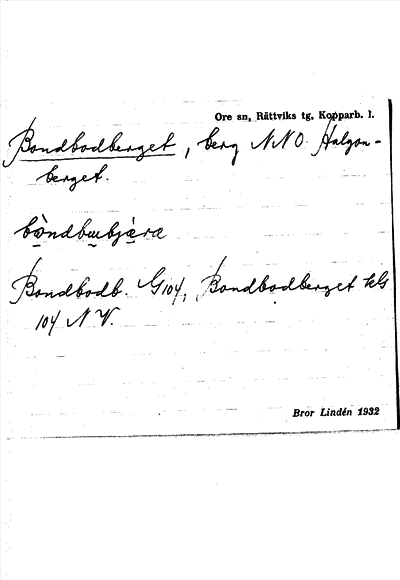 Ore sn, Rättviks tg, Kopparb. l.
Bondbodberget, berg NNO. Halgon-
berget.
Bondbodb. G104, Bondbodberget kls
104 NV.
Bror Lindén 1932